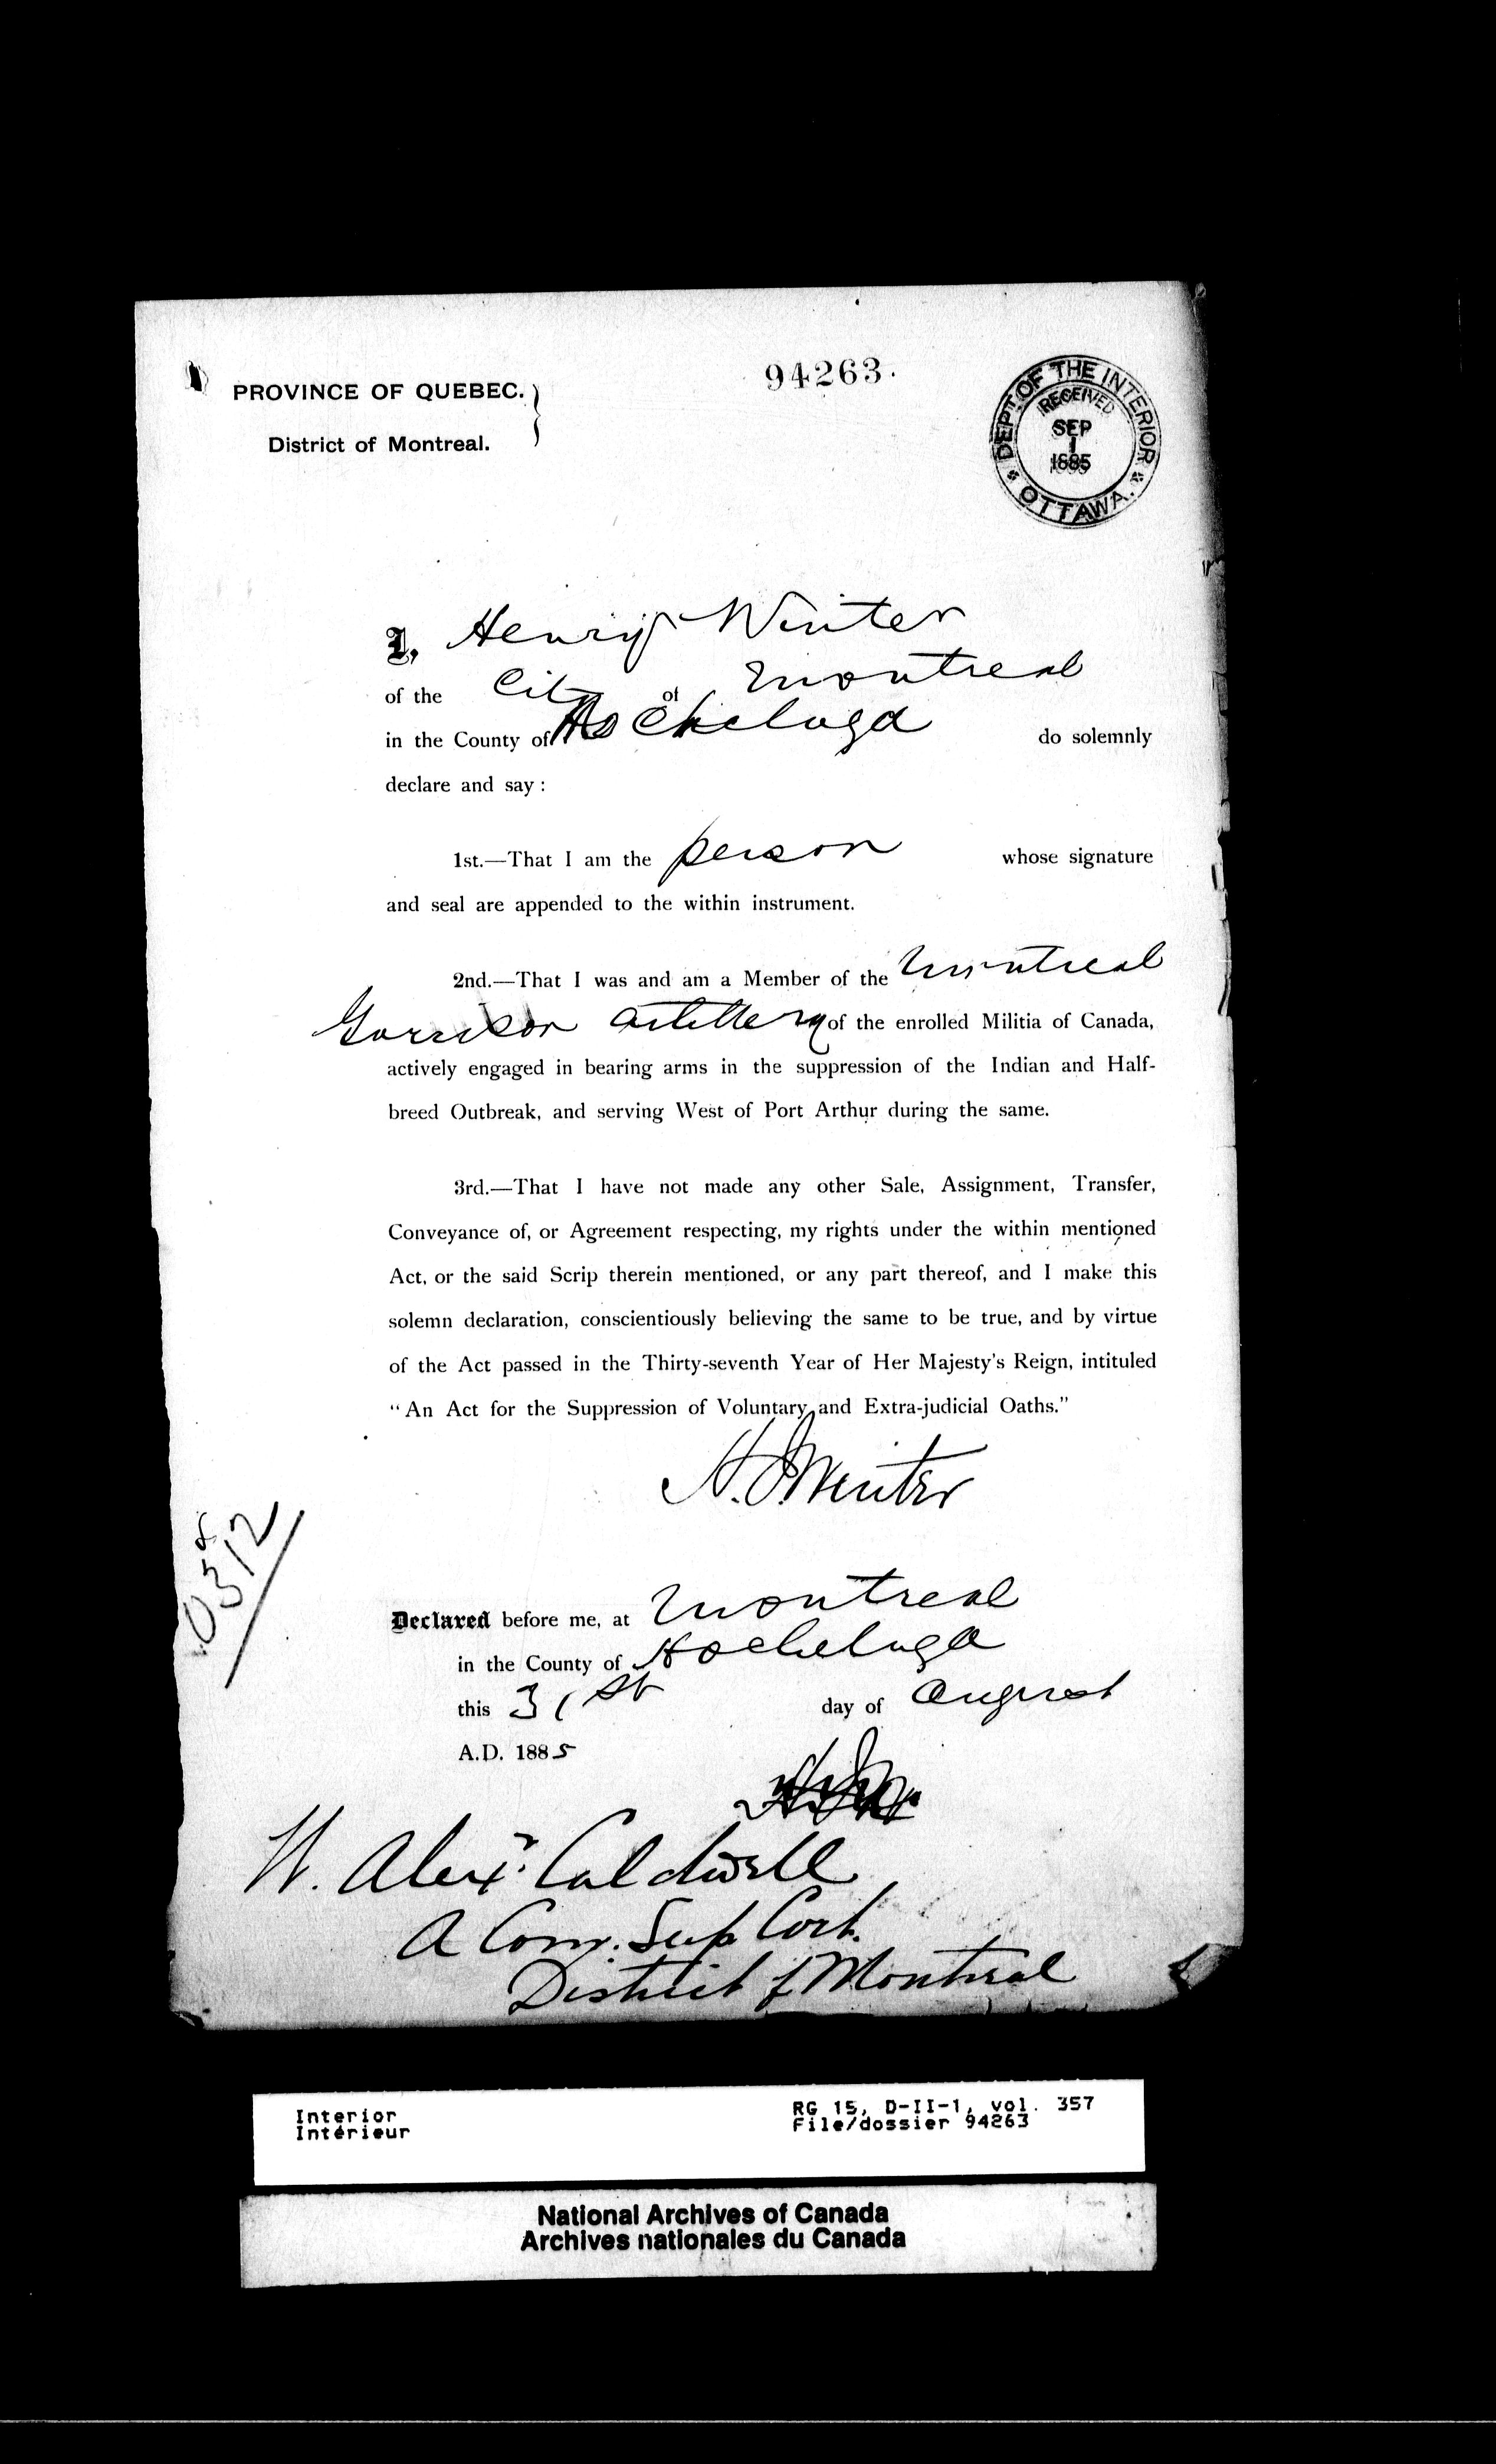 94263.
PROVINCE OF QUEBEC.
District of Montreal.
DEPT. OF THE INTERIOR
RECEIVED
SEP
1
1885
OTTAWA.
I, Henry Winter
of the City of Montreal
in the County of Hochelaga do solemnly
declare and say :
1st.—That I am the person whose signature
and seal are appended to the within instrument.
2nd.—That I was and am a Member of the Montreal
Garrison Artillery of the enrolled Militia of Canada,
actively engaged in bearing arms in the suppression of the Indian and Half-
breed Outbreak, and serving West of Port Arthur during the same.
3rd.—That I have not made any other Sale, Assignment, Transfer,
Conveyance of, or Agreement respecting, my rights under the within mentioned
Act, or the said Scrip therein mentioned, or any part thereof, and I make this
solemn declaration, conscientiously believing the same to be true, and by virtue
of the Act passed in the Thirty-seventh Year of Her Majesty's Reign, intituled
"An Act for the Suppression of Voluntary and Extra-judicial Oaths."
H. J. Winter
Declared before me, at Montreal
in the County of Hochelaga
this 31st day of August
A.D. 1885
W. Alexr. Caldwell
A Com. Sup Cort.
District of Montreal
Interior
Intérieur
RG 15, D-II-1, vol. 357
File/dossier 94263
National Archives of Canada
Archives nationales du Canada